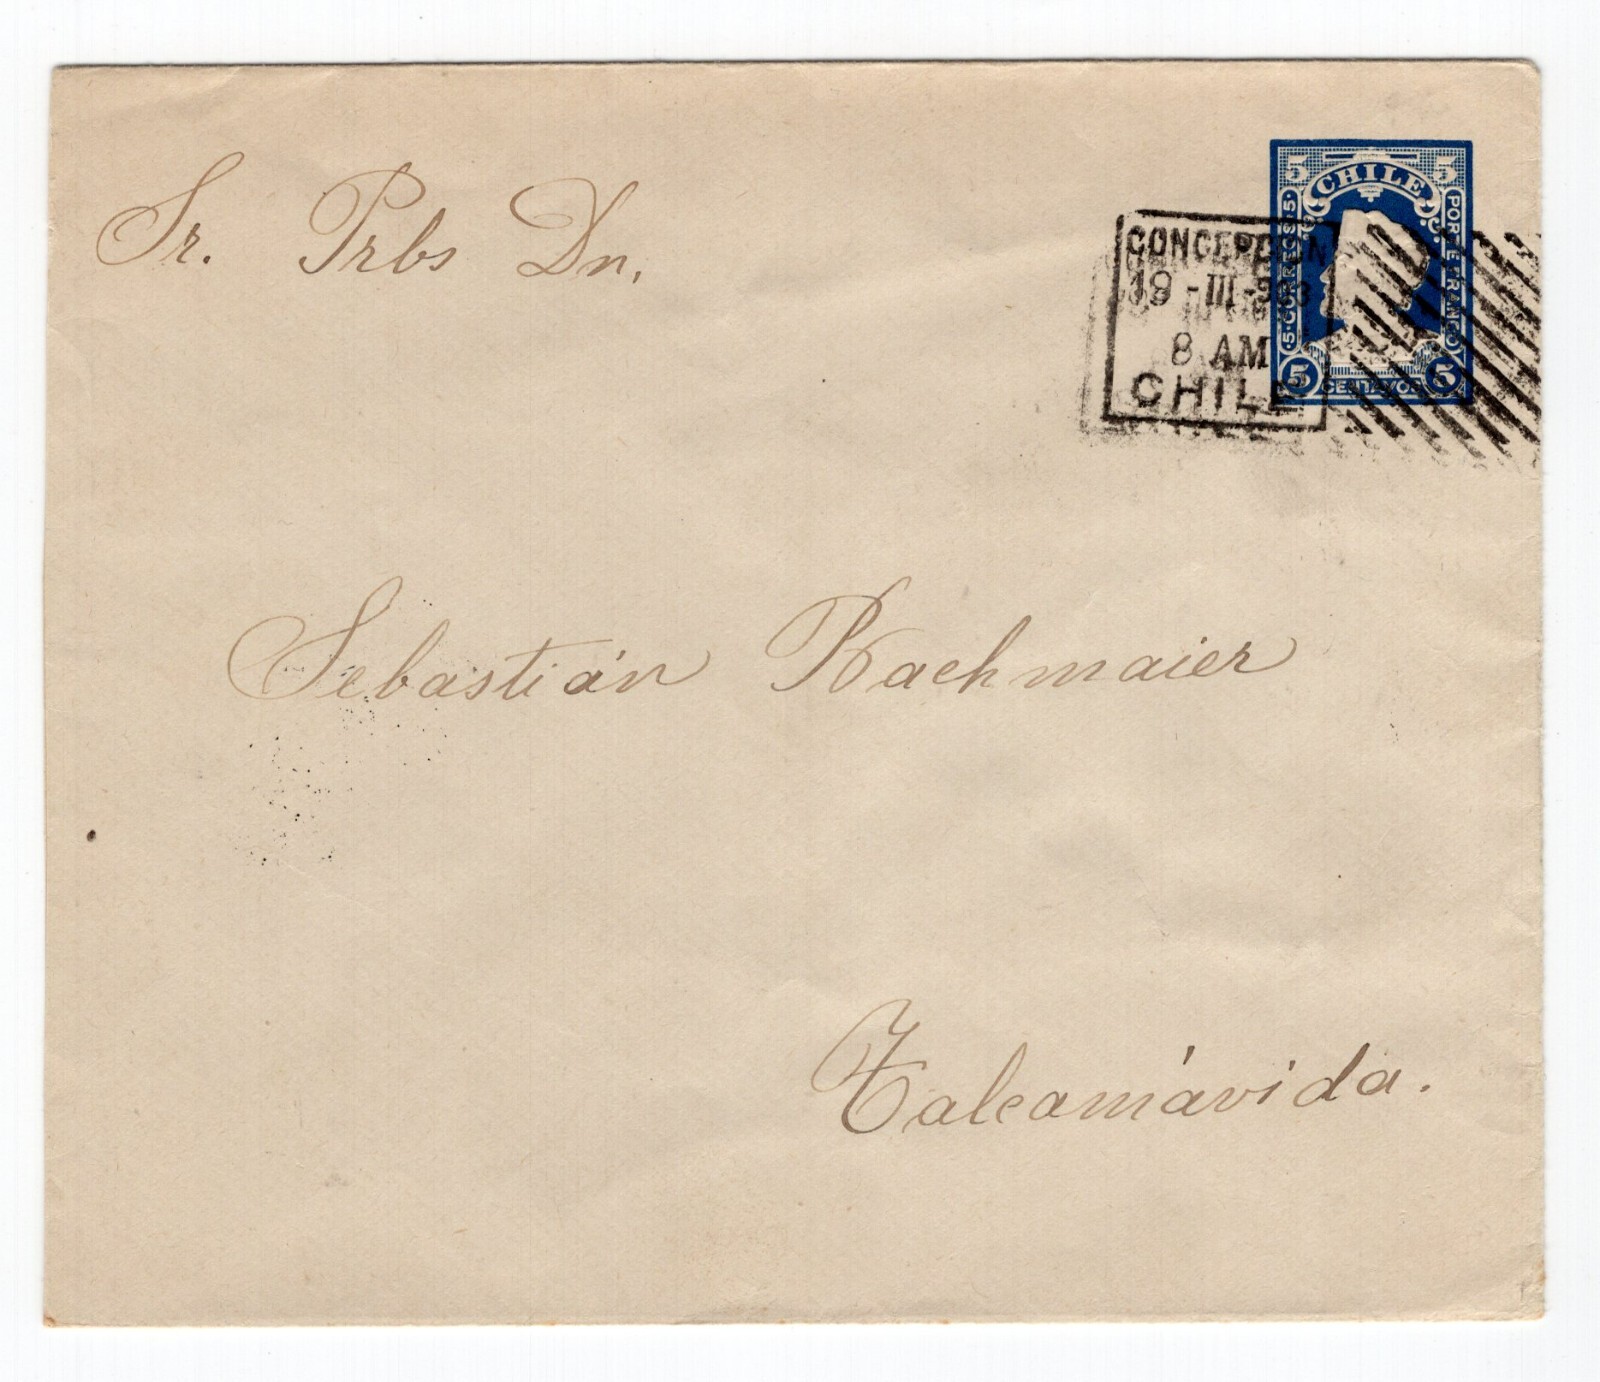 Sr. Prbs Dn,
5 CHILE 5
·5·CORREOS·5·
PORTE FRANCO
5 CENTAVOS 5
CONCEPCION
19 - III -
8 AM
CHILE
Sebastián Rachmaier
Talcamávida.